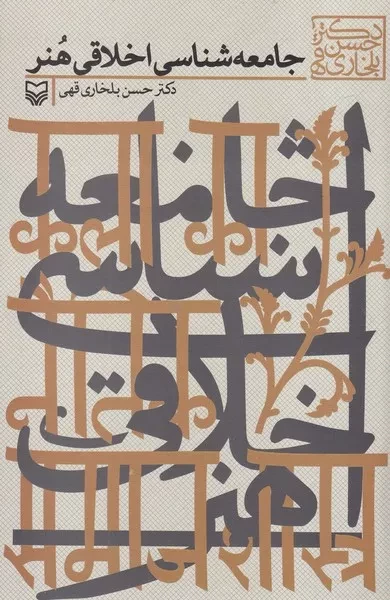 دکتر
حسن
بلخاری
قهی
جامعه‌شناسی اخلاقی هُنر
دکتر حسن بلخاری قهی
جامعه
شناسی
اخلاقی
هنر
कला का
नैतिक
समाजशास्त्र